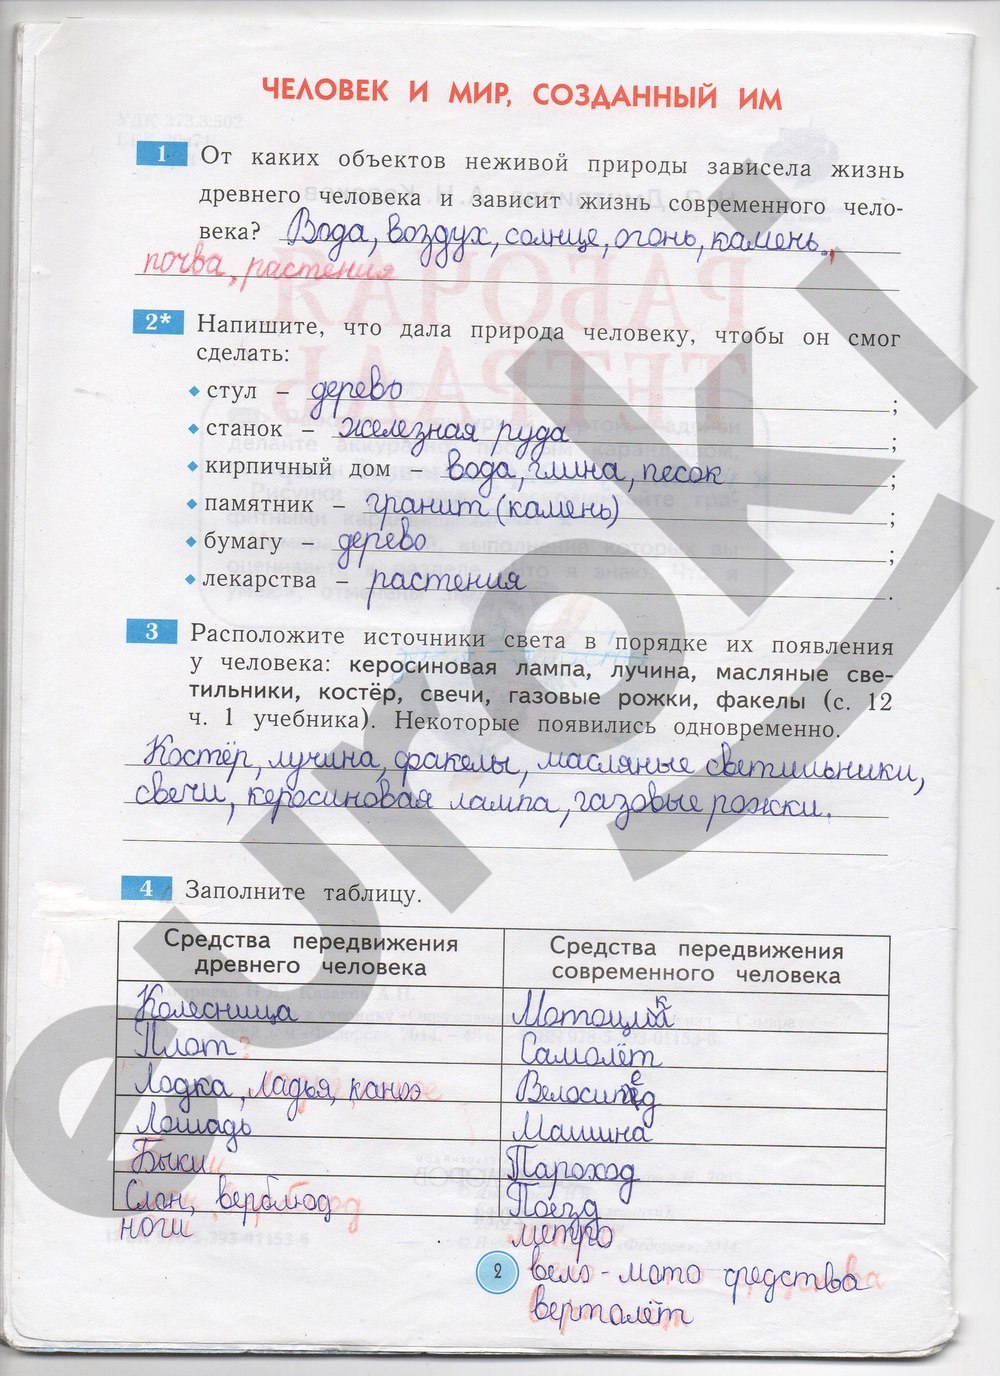 ЧЕЛОВЕК И МИР, СОЗДАННЫЙ ИМ
1 От каких объектов неживой природы зависела жизнь
древнего человека и зависит жизнь современного чело-
века? Вода, воздух, солнце, огонь, камень,
почва, растения
2* Напишите, что дала природа человеку, чтобы он смог
сделать:
стул – дерево ;
станок – железная руда ;
кирпичный дом – вода, глина, песок ;
памятник – гранит (камень) ;
бумагу – дерево ;
лекарства – растения .
3 Расположите источники света в порядке их появления
у человека: керосиновая лампа, лучина, масляные све-
тильники, костёр, свечи, газовые рожки, факелы (с. 12
ч. 1 учебника). Некоторые появились одновременно.
Костёр, лучина, факелы, масляные светильники,
свечи, керосиновая лампа, газовые рожки.
4 Заполните таблицу.
Средства передвижения
древнего человека
Средства передвижения
современного человека
Колесница Мотоцикл
Плот Самолёт
Лодка, ладья, каноэ Велосипед
Лошадь Машина
Быки Пароход
Слон, верблюд Поезд
ноги метро
2 вело-мото средства
вертолёт
euroki